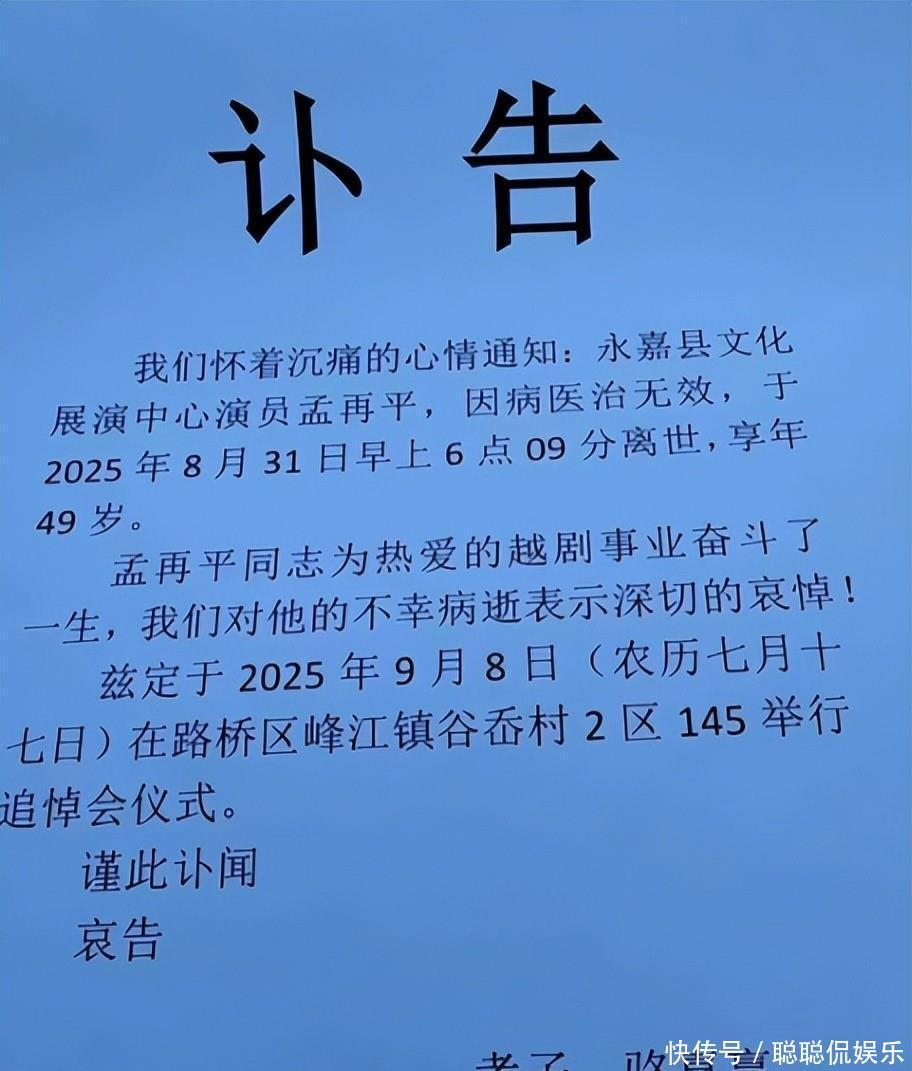 讣告
我们怀着沉痛的心情通知：永嘉县文化
展演中心演员孟再平，因病医治无效，于
2025年8月31日早上6点09分离世，享年
49岁。
孟再平同志为热爱的越剧事业奋斗了
一生，我们对他的不幸病逝表示深切的哀悼！
兹定于2025年9月8日（农历七月十
七日）在路桥区峰江镇谷岙村2区145举行
追悼会仪式。
谨此讣闻
哀告
快传号／聪聪侃娱乐